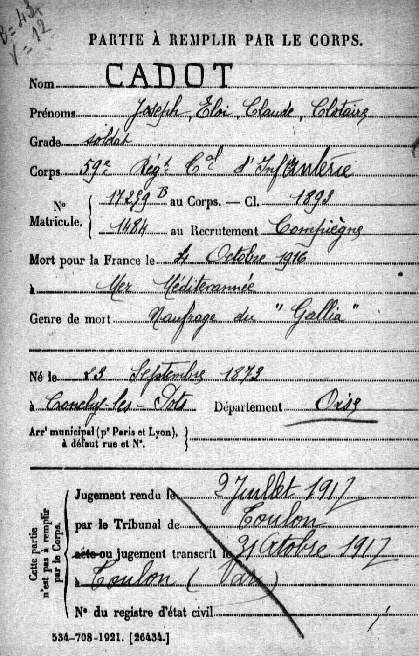 B = 43
V = 12
PARTIE À REMPLIR PAR LE CORPS.
Nom CADOT
Prénoms Joseph, Eloi, Claude, Clotaire
Grade soldat
Corps 59e Régt Cal d'Infanterie
N° Matricule. { 17259 B au Corps. — Cl. 1893
1484 au Recrutement Compiègne
Mort pour la France le 4 Octobre 1916
à Mer Méditerannée
Genre de mort Naufrage du "Gallia"
Né le 23 Septembre 1873
à Conchy-les-Pots Département Oise
Arrt municipal (pr Paris et Lyon),
à défaut rue et N°.
Cette partie n'est pas à remplir par le Corps.
Jugement rendu le 2 Juillet 1917
par le Tribunal de Toulon
acte ou jugement transcrit le 31 Octobre 1917
à Toulon (Var)
N° du registre d'état civil
534-708-1921. [26434.]